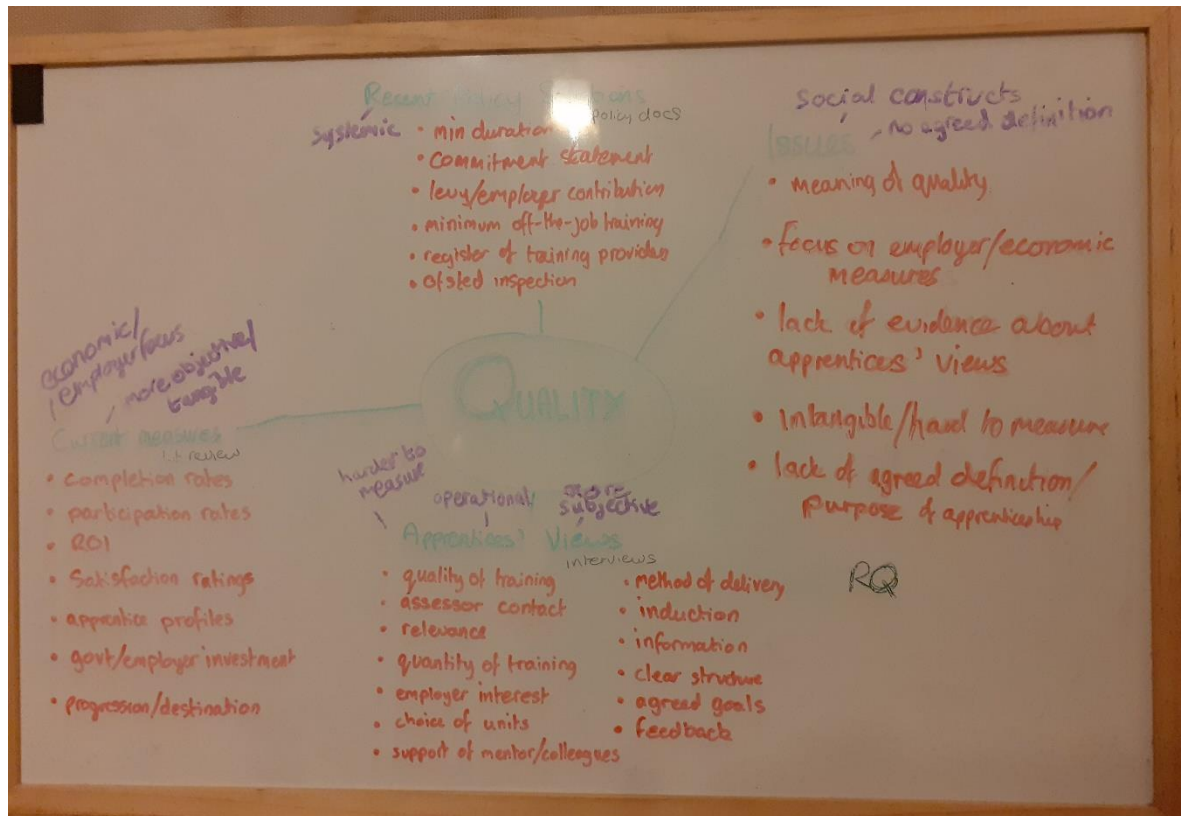 Recent Policy
policy docs
systemic
• min duration
• commitment statement
• levy/employer contribution
• minimum off-the-job training
• register of training providers
• Ofsted inspection
social constructs
no agreed definition
Issues
• meaning of quality
• focus on employer/economic
measures
• lack of evidence about
apprentices' views
• Intangible/hard to measure
• lack of agreed definition/
purpose of apprenticeship
RQ
QUALITY
economic/
employer focus
more objective/
tangible
Current measures
lit review
• completion rates
• participation rates
• ROI
• Satisfaction ratings
• apprentice profiles
• govt/employer investment
• progression/destination
harder to
measure
operational
more
subjective
Apprentices' Views
interviews
• quality of training
• assessor contact
• relevance
• quantity of training
• employer interest
• choice of units
• support of mentor/colleagues
• method of delivery
• induction
• information
• clear structure
• agreed goals
• feedback